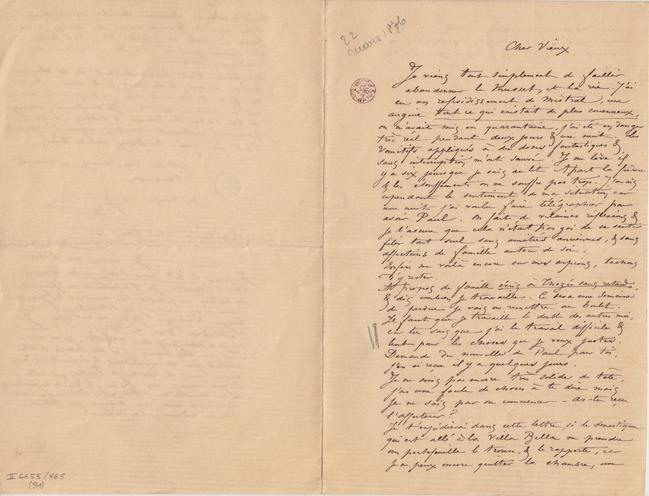 22
mars 1876
Cher Vieux
Je viens tout simplement de failler
abandonner le Musset, et la vie. J'ai
eu un refroidissement de Mistral, une
angine tout ce qui existait de plus couenneux,
on m'avait mis en quarantaine, j'ai été en danger
très réel pendant deux jours & une nuit. Les
vomitifs appliqués à des doses fantastiques &
sans interruption m'ont sauvé. Je me lève il
y a six jours que je suis au lit. Apart la fièvre
& les étouffements on ne souffre pas trop. J'avais
cependant le sentiment de ma situation, car
une nuit j'ai voulu faire télégraphier pour
avoir Paul. On fait de vilaines réflexions &
je t'assure que cela n'était pas gai de se sentir
filer tout seul sans amitiés anciennes, & sans
affections de famille autour de soi.
Enfin me voilà encore sur mes arpions, tachons
d'y rester.
A propos de famille écris à sans retard,
& dis combien je travaille. C'est une semaine
de perdue je vais me remettre au boulet.
Il faut que je travaille le double des autres moi,
car tu sais que j'ai le travail difficile &
lent pour les choses que je veux justes.
Demande des nouvelles de Paul pour toi,
j'en ai reçu il y a quelques jours.
Je ne suis pas encore très solide de tête,
j'ai une foule de choses à te dire mais
je ne sais par où commencer - As-tu reçu
l'affuteur?
Je t'expédierai dans cette lettre, si le domestique
qui est allé à la Villa Bella me prendre
un portefeuille le trouve, & le rapporte, car
je ne peux encore quitter la chambre, une
II 6655/465
(91)